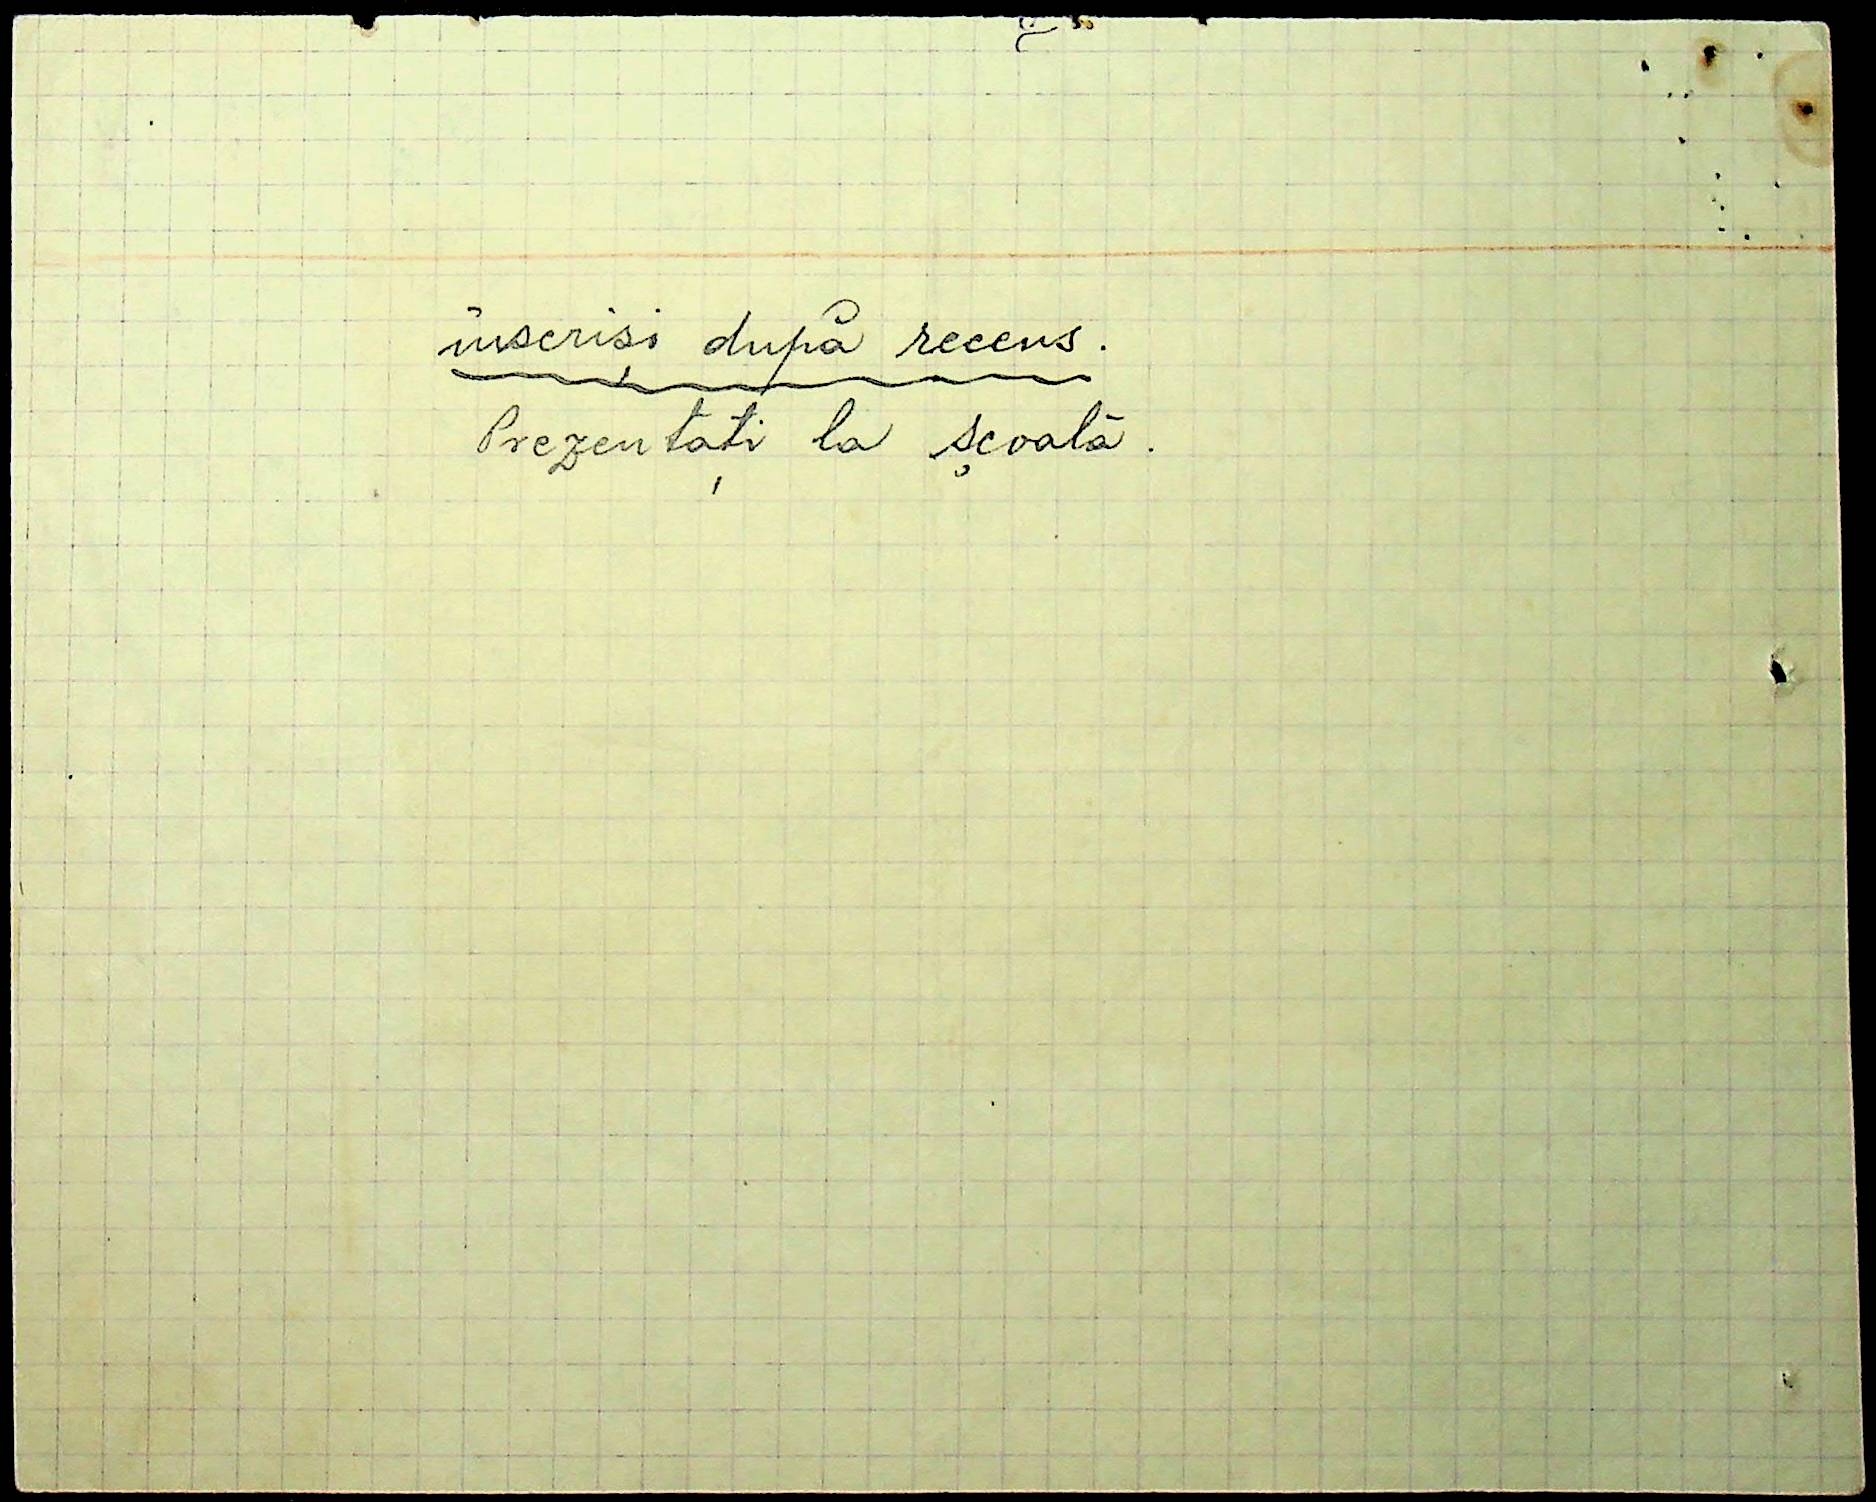 înscriși după recens.
Prezentați la școală.